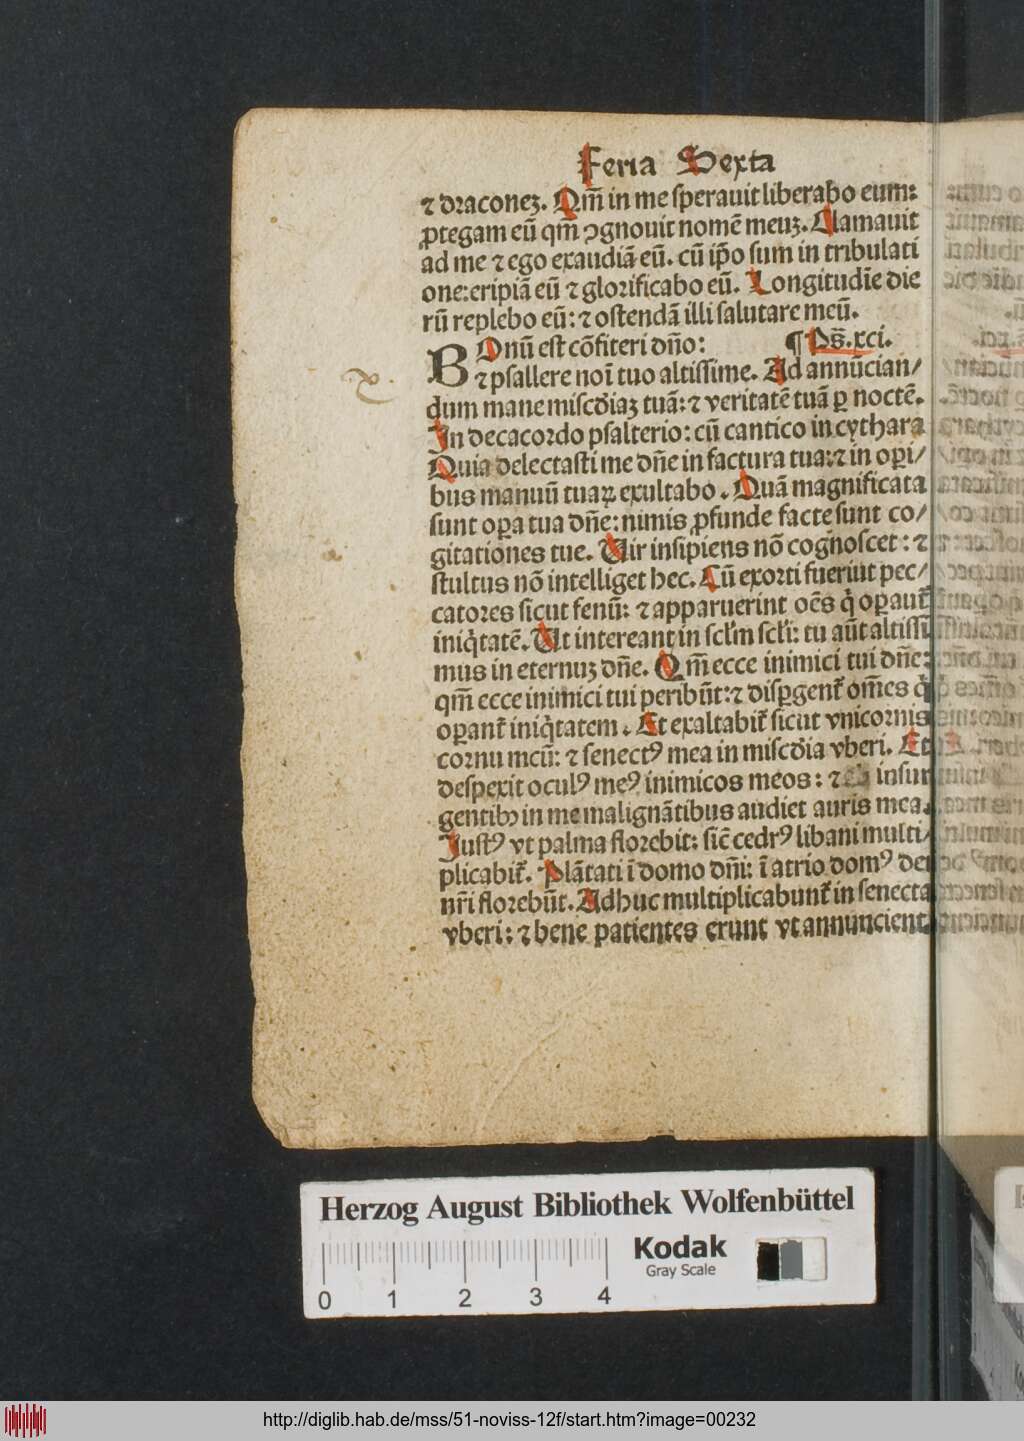 Feria Sexta
⁊ draconeȝ. Qm̄ in me ſperauit liberabo eum:
ꝓtegam eū qm̄ ꝯgnouit nomē meuȝ. Clamauit
ad me ⁊ ego exaudiā eū. cū ip̄o ſum in tribulati
one: eripiā eū ⁊ glorificabo eū. Longitudīe die
rū replebo eū: ⁊ oſtendā illi ſalutare meū.
BOnū eſt cōfiteri dn̄o: ¶ Ps̄. xci.
⁊ pſallere noī tuo altiſſime. Ad annūcian/
dum mane miſcd̄iaȝ tuā: ⁊ veritatē tuā ꝑ noctē.
In decacordo pſalterio: cū cantico in cythara
Quia delectaſti me dn̄e in factura tua: ⁊ in oꝑi/
bus manuū tuaꝝ exultabo. Quā magnificata
ſunt oꝑa tua dn̄e: nimis ꝓfunde facte ſunt co/
gitationes tue. Uir inſipiens nō cognoſcet: ⁊
ſtultus nō intelliget hec. Cū exorti fuerint pec/
catores ſicut fenū: ⁊ apparuerint oēs q̇ oꝑaut̄
iniq̇tatē. Ut intereant in ſcl̄m ſcl̄i: tu aūt altiſſi
mus in eternuȝ dn̄e. Qm̄ ecce inimici tui dn̄e:
qm̄ ecce inimici tui peribūt: ⁊ diſꝑgent᷑ om̄es q̇
oꝑant᷑ iniq̇tatem. Et exaltabit᷑ ſicut vnicornis
cornu meū: ⁊ ſenectꝰ mea in miſcd̄ia vberi. Et
deſpexit oculꝰ meꝰ inimicos meos: ⁊ inſur
gentibꝫ in me malignātibus audiet auris mea.
Juſtꝰ vt palma florebit: ſic̄ cedrꝰ libani multi/
plicabit᷑. Plātati ī domo dn̄i: ī atrio domꝰ dei
nr̄i florebūt. Adhuc multiplicabunt᷑ in ſenecta
vberi: ⁊ bene patientes erunt vt annuncient.
Herzog August Bibliothek Wolfenbüttel
Kodak
Gray Scale
0 1 2 3 4
http://diglib.hab.de/mss/51-noviss-12f/start.htm?image=00232